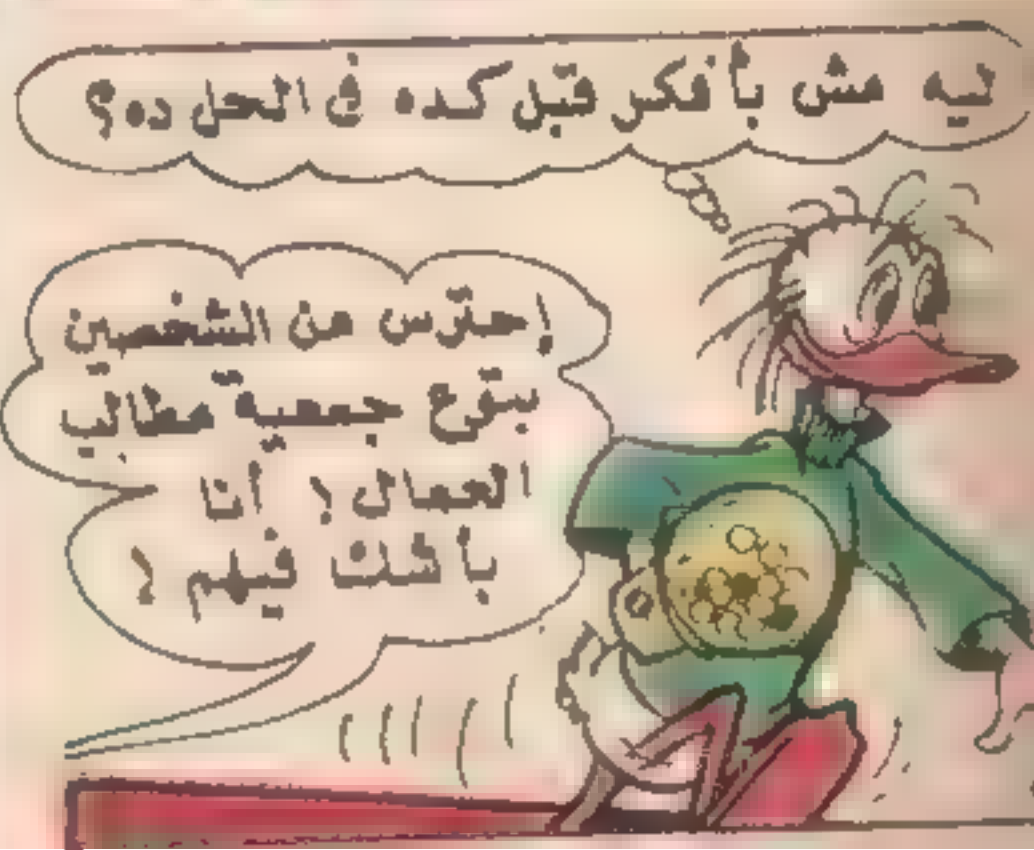 ليه مش بأفكر قبل كده في الحل ده؟
إحترس من الشخصين
بتوع جمعية مطالب
العمال! أنا
بأشك فيهم!